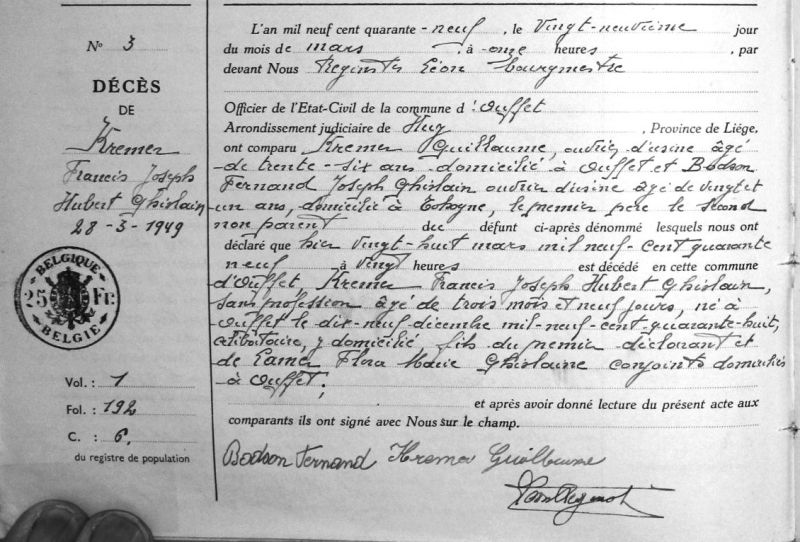 N° 3
DÉCÈS
DE
Kremer
Francis Joseph
Hubert Ghislain
28-3-1949
BELGIQUE
25 Fr.
BELGIE
Vol. : 1
Fol. : 192
C. : 6.
du registre de population
L'an mil neuf cent quarante-neuf, le vingt-neuvième jour
du mois de mars, à onze heures, par
devant Nous Léon bourgmestre
Officier de l'Etat-Civil de la commune d'Ouffet
Arrondissement judiciaire de Huy, Province de Liége,
ont comparu Kremer Guillaume, ouvrier d'usine âgé
de trente-six ans domicilié à Ouffet et Bodson
Fernand Joseph Ghislain ouvrier d'usine âgé de vingt et
un ans, domicilié à, le premier père le second
non parent du défunt ci-après dénommé lesquels nous ont
déclaré que hier vingt-huit mars mil neuf-cent quarante
neuf à vingt heures est décédé en cette commune
d'Ouffet, Kremer Francis Joseph Hubert Ghislain,
sans profession âgé de trois mois et neuf jours, né à
Ouffet le dix-neuf décembre mil-neuf-cent-quarante-huit,
célibataire, y domicilié, fils du premier déclarant et
de Flora Marie Ghislaine conjoints domiciliés
à Ouffet;
et après avoir donné lecture du présent acte aux
comparants ils ont signé avec Nous sur le champ.
Bodson Fernand Kremer Guillaume